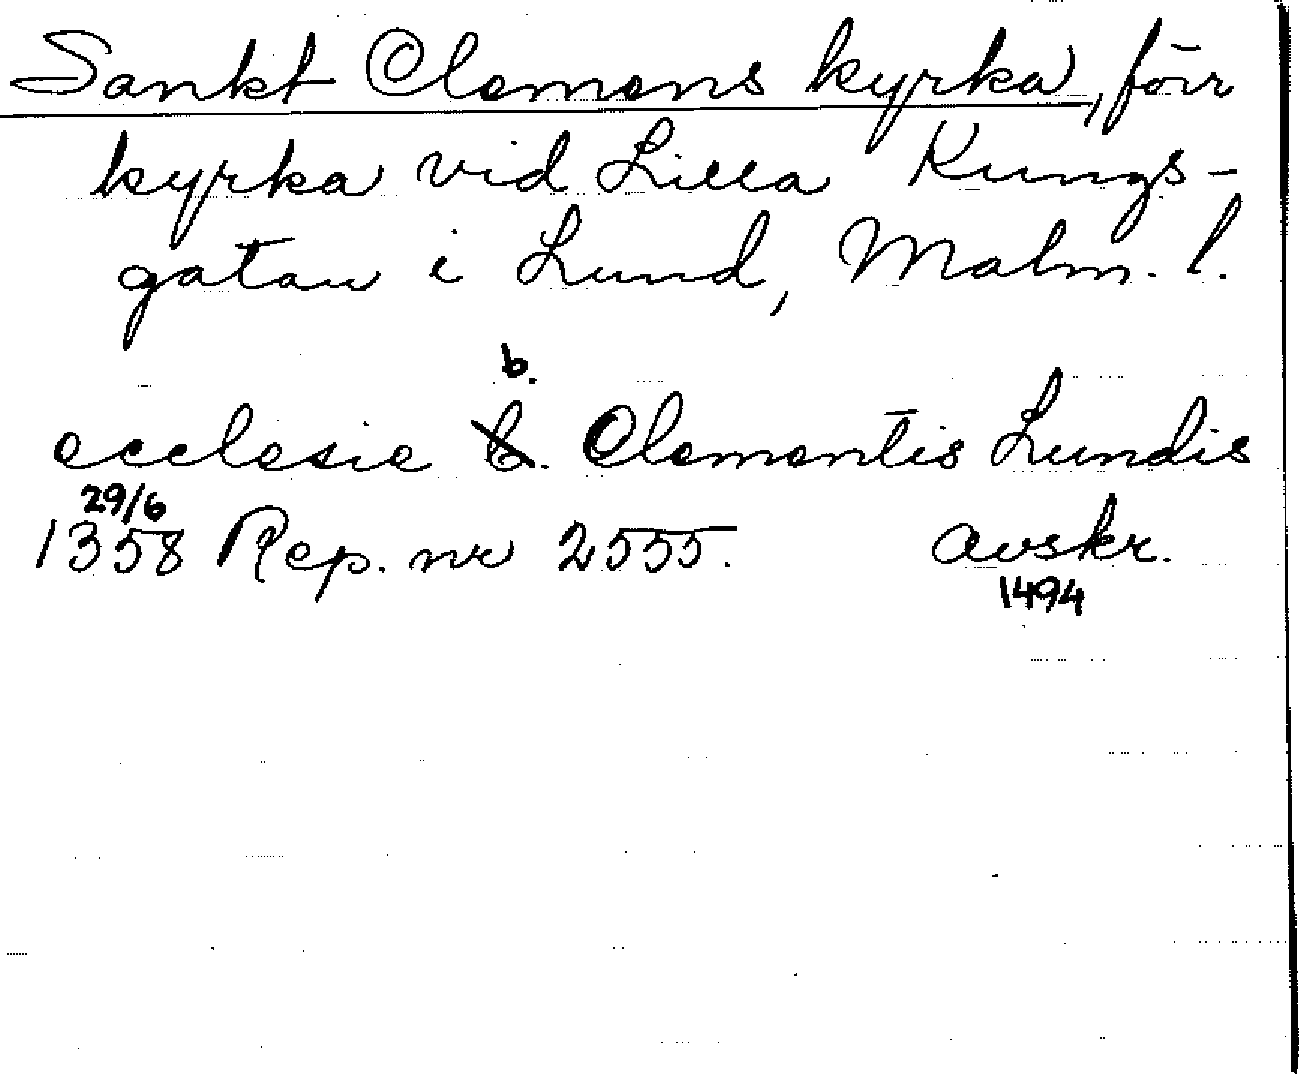 Sankt Clemens kyrka, förr
kyrka vid Lilla Kungs-
gatan i Lund, Malm. l.
b.
ecclesie B. Clementis Lundis
29/6
1358 Rep. nr 2555. avskr.
1494